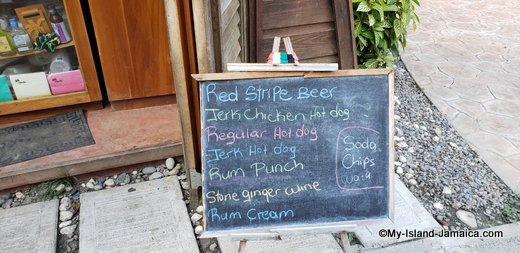 Red Stripe Beer
Jerk Chicken Hot dog
Regular Hot dog
Jerk Hot dog
Rum Punch
Stone ginger wine
Rum Cream
Soda
Chips
©My-Island-Jamaica.com